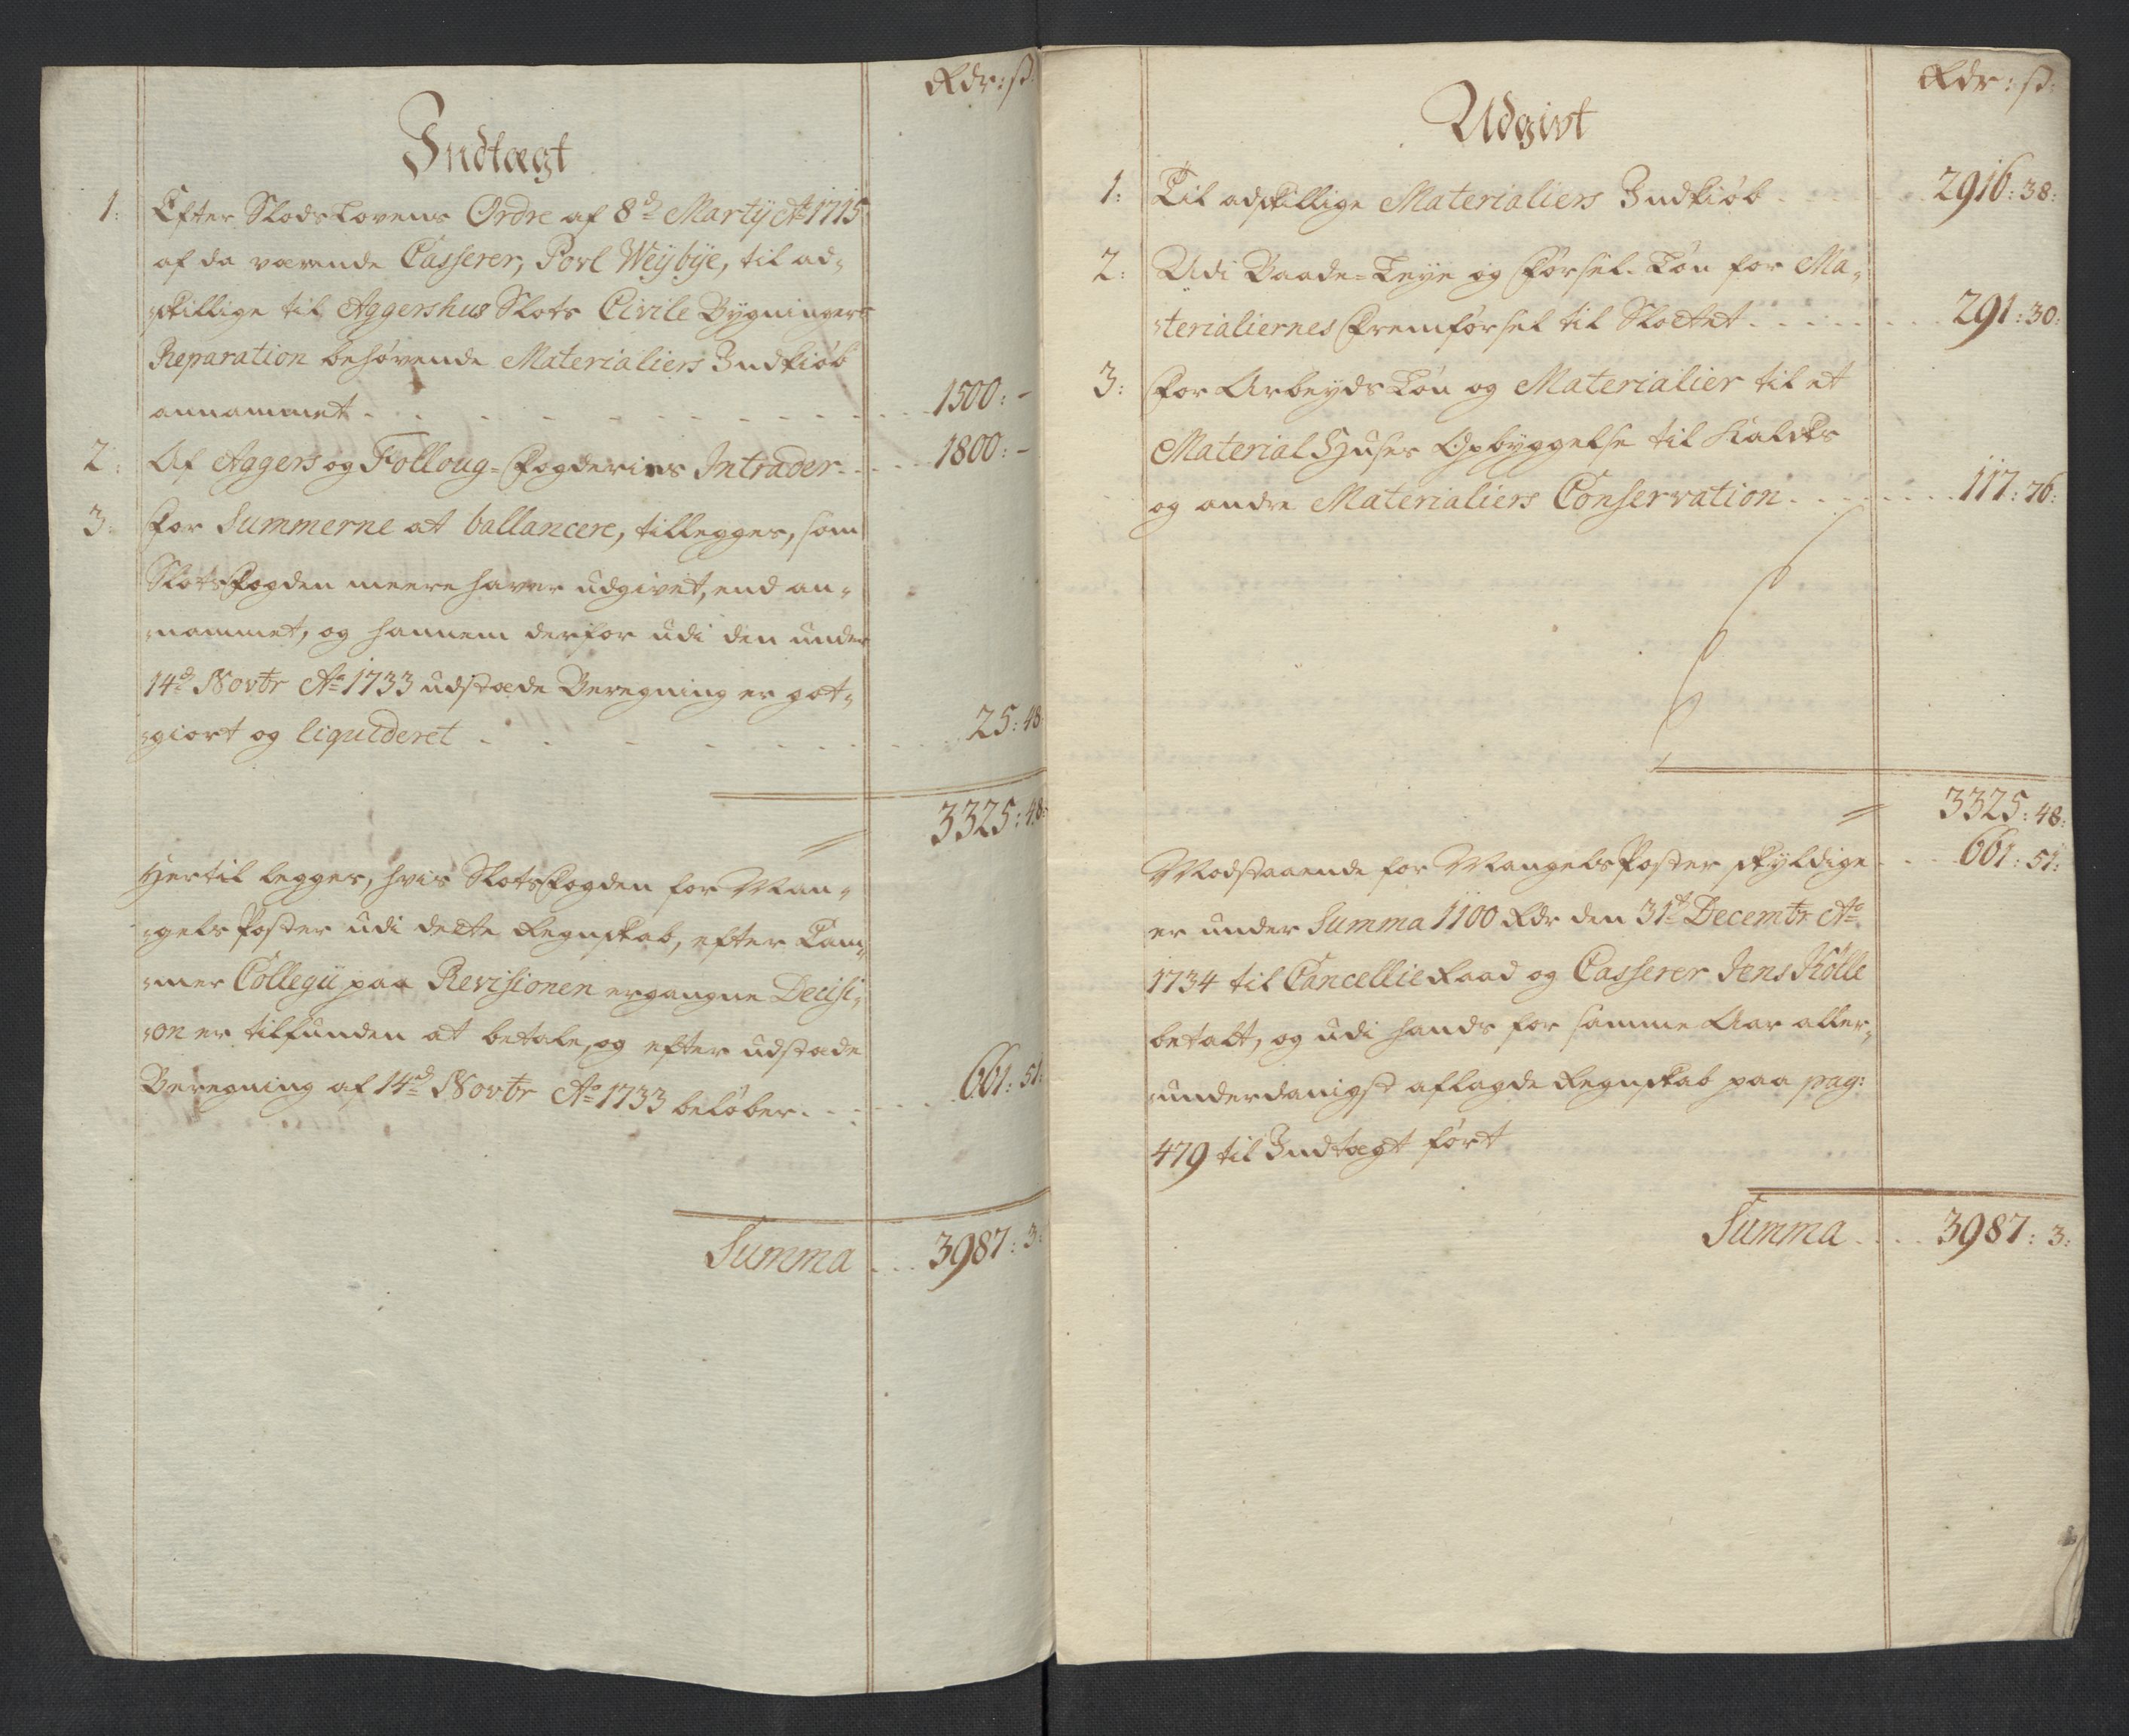 Rdr: ß:
Indtægt
1: Efter SlodsLovens Ordre af 8de Martij Ao 1715
af da værende Casserer, Povl Weybye, til ad-
skillige til Aggershus Slots Civile Bygningers
Reparation behøvende Materialiers Indkiøb
annammet . . . . 1500: -
2: Af Aggers og Folloug-Fogderies Intrader . . . 1800: -
3: For Summerne at ballancere, tillegges, som
SlotsFogden meere haver udgivet, end an-
nammet, og hannem derfor udi den under
14de Novbr Ao 1733 udstæde Beregning er got-
giort og liquideret . . . . 25: 48
3325: 48:
Hertil legges, hvis SlotsFogden for Man-
gels Poster udi dette Regnskab, efter Cam-
mer Collegii paa Revisionen ergangne Decisi-
on er tilfunden at betale, og efter udstæde
Beregning af 14de Novbr Ao 1733 beløber . . . 661: 51:
Summa . . . 3987: 3:
Rdr: ß:
Udgivt
1: Til adskillige Materialiers Indkiøb . . . 2916: 38:
2: Udi Baade-Leye og Førsel-Løn for Ma-
terialiernes Fremførsel til Slottet . . . . 291: 30:
3: For Arbeyds Løn og Materialier til et
Material Huses Opbyggelse til Kalcks
og andre Materialiers Conservation . . . . 117: 76:
3325: 48:
Modstaaende for Mangels Poster skyldige . . . 661: 51:
er under Summa 1100 Rdr den 31te Decembr Ao
1734 til CancellieRaad og Casserer Jens Kølle
betalt, og udi hands for samme Aar aller-
underdanigst aflagde Regnskab paa pag:
479 til Indtægt ført
Summa . . . . 3987: 3: